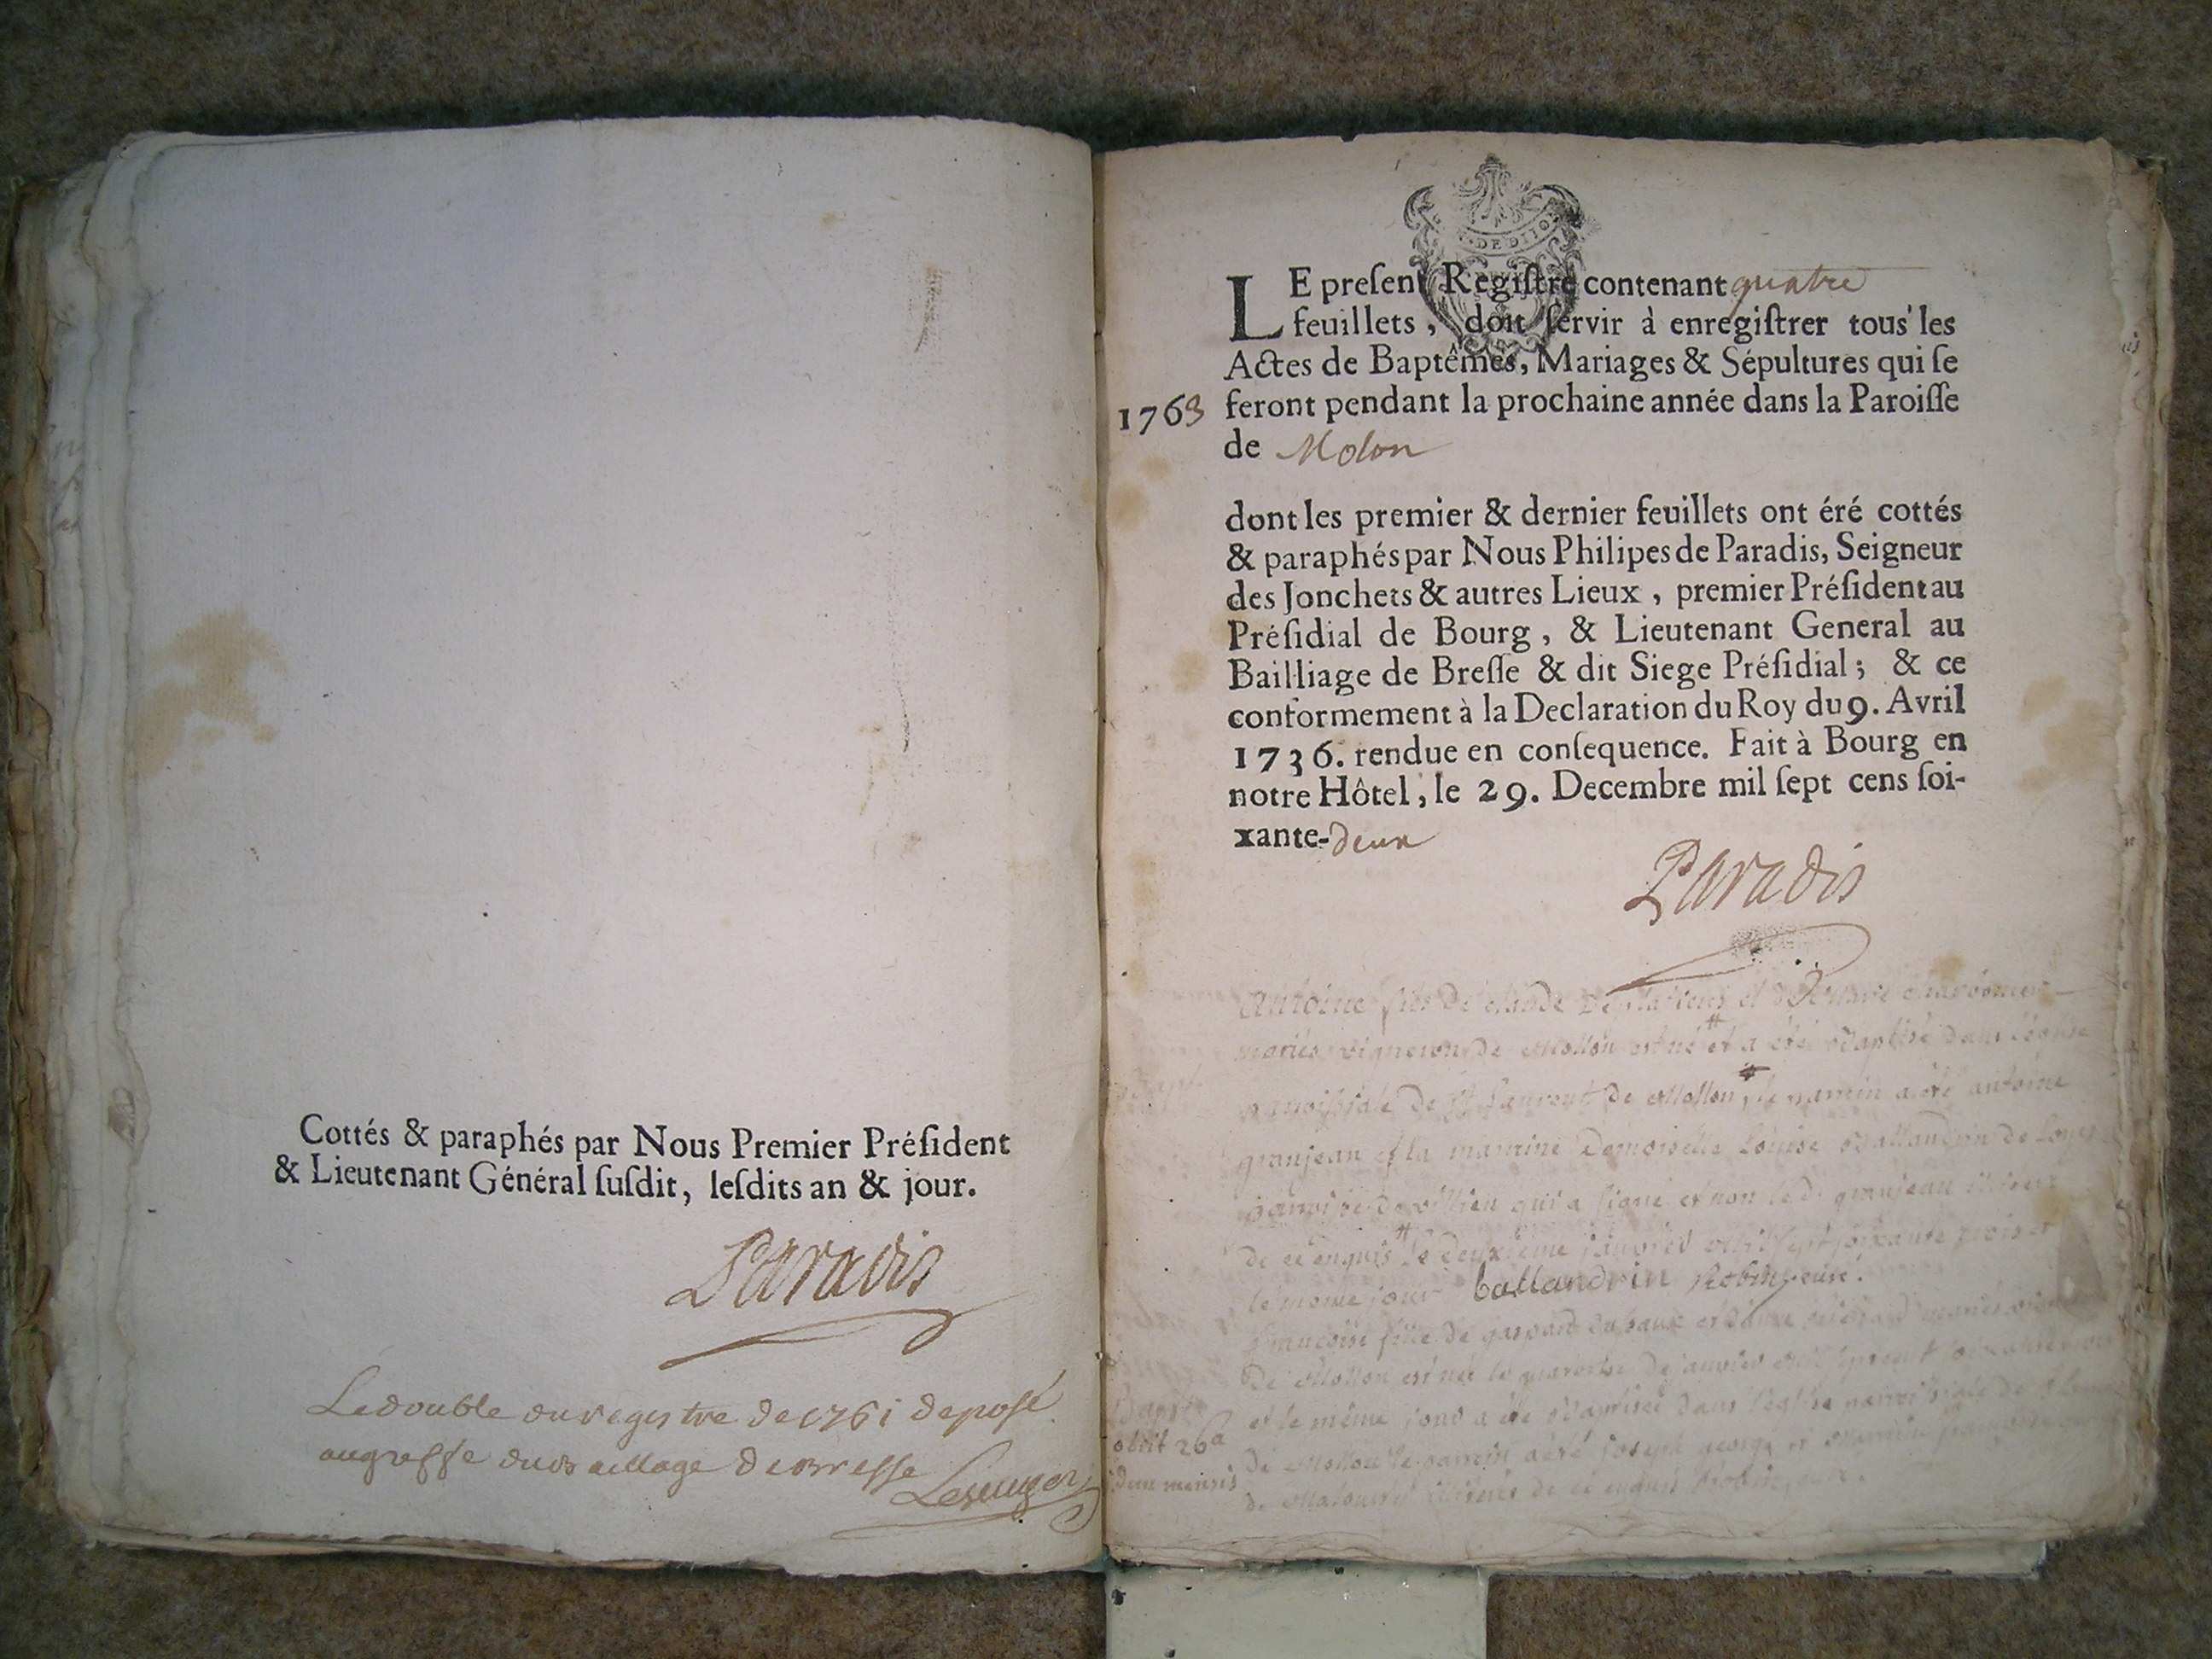 Cottés & paraphés par Nous Premier Préſident
& Lieutenant Général ſuſdit, leſdits an & jour.
Paradis
Le double du regiſtre de 1761 deposé
au greffe du Bailliage de Bresse
DE DIJON
LE preſent Regiſtre contenant quatre
feuillets, doit ſervir à enregiſtrer tous les
Actes de Baptêmes, Mariages & Sépultures qui ſe
1763 feront pendant la prochaine année dans la Paroiſſe
de Molon
dont les premier & dernier feuillets ont éré cottés
& paraphés par Nous Philipes de Paradis, Seigneur
des Jonchets & autres Lieux, premier Préſident au
Préſidial de Bourg, & Lieutenant General au
Bailliage de Breſſe & dit Siege Préſidial; & ce
conformement à la Declaration du Roy du 9. Avril
1736. rendue en conſequence. Fait à Bourg en
notre Hôtel, le 29. Decembre mil ſept cens ſoi-
xante-deux
Paradis
antoine fils de claude et de
mariés vignerons de Mollon est né et a été Baptisé dans l'église
parroissiale de St Laurent de Mollon, le parrin a été antoine
granjean et la marrine Demoiselle Louise Ballandrin de
parroisse de villieu qui a signé et non le d. granjean
de ce enquis le deuxieme janvier mil sept soixante trois et
le meme jour ballandrin Robin curé.
francoise fille de et mariés
de Mollon est née le quatorse de janvier mil sept cent soixante trois
et le même jour a été Baptisée dans l'église parroissiale de St
obiit 26a de Mollon le parrin a été joseph george et
dun mensis de de ce enquis Robin